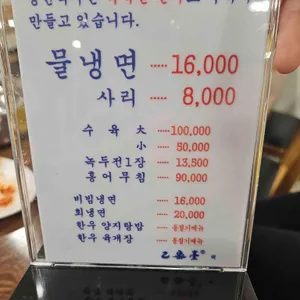 만들고 있습니다.
물냉면 ..... 16,000
사리 ..... 8,000
수육 大 ..... 100,000
小 ..... 50,000
녹두전1장 ..... 13,500
홍어무침 ..... 90,000
비빔냉면 ..... 16,000
회냉면 ..... 20,000
한우 양지탕밥 ..... 동절기메뉴
한우 육개장 ..... 동절기메뉴